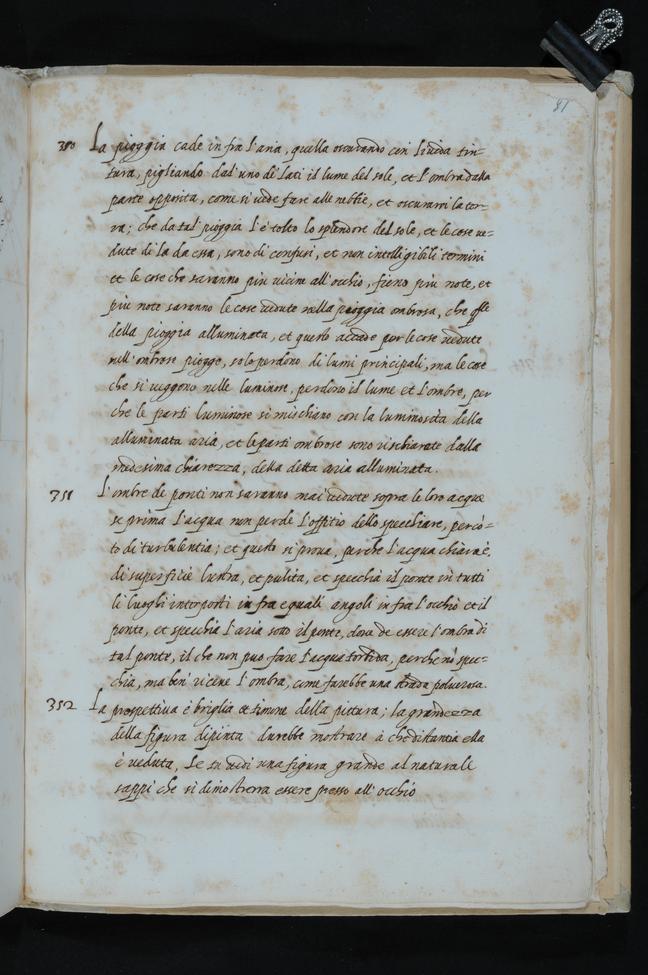 87
350 La pioggia cade in fra l'aria, quella oscurando con livida tin-
tura, pigliando dal' uno de' lati il lume del sole, et l'ombra dalla
parte opposita, come si vede fare alle nebbie, et oscurarsi la ter-
ra; che da tal' pioggia l'è tolto lo splendore del sole, et le cose ve-
dute di la da essa, sono di confusi, et non intelligibili termini
et le cose che saranno più vicine all'occhio, fieno più note, et
più note saranno le cose vedute nella pioggia ombrosa, che qlle
della pioggia alluminata, et questo accade per le cose vedute
nell'ombrose piogge, solo perdono di lumi principali, ma le cose
che si veggono nelle luminose, perdono il lume et l'ombre, per
che le parti luminose si mischiano con la luminosità della
alluminata aria, et le parti ombrose sono rischiarate dalla
medesima chiarezza, della detta aria alluminata.
351 L'ombre de ponti non saranno mai vedute sopra le loro acque
se prima l'acqua non perde l'offitio dello specchiare, per cō-
to di turbulentia; et questo si prova, perche l'acqua chiara è.
di superficie lustra, et pulita, et specchia il ponte in tutti
li luoghi interposti in fra equali angoli in fra l'occhio et il
ponte, et specchia l'aria sotto il ponte, dove de essere l'ombra di
tal ponte, il che non puo fare l'acqua torbida, perche nō spec-
chia, ma ben' riceve l'ombra, come farebbe una strada polverosa.
352 La prospettiva è briglia et timone della pittura; la grandezza
della figura dipinta dovrebbe mostrare à che distantia ella
è veduta, Se tu vedi una figura grande al naturale
sappi che si dimostrera essere presso all'occhio